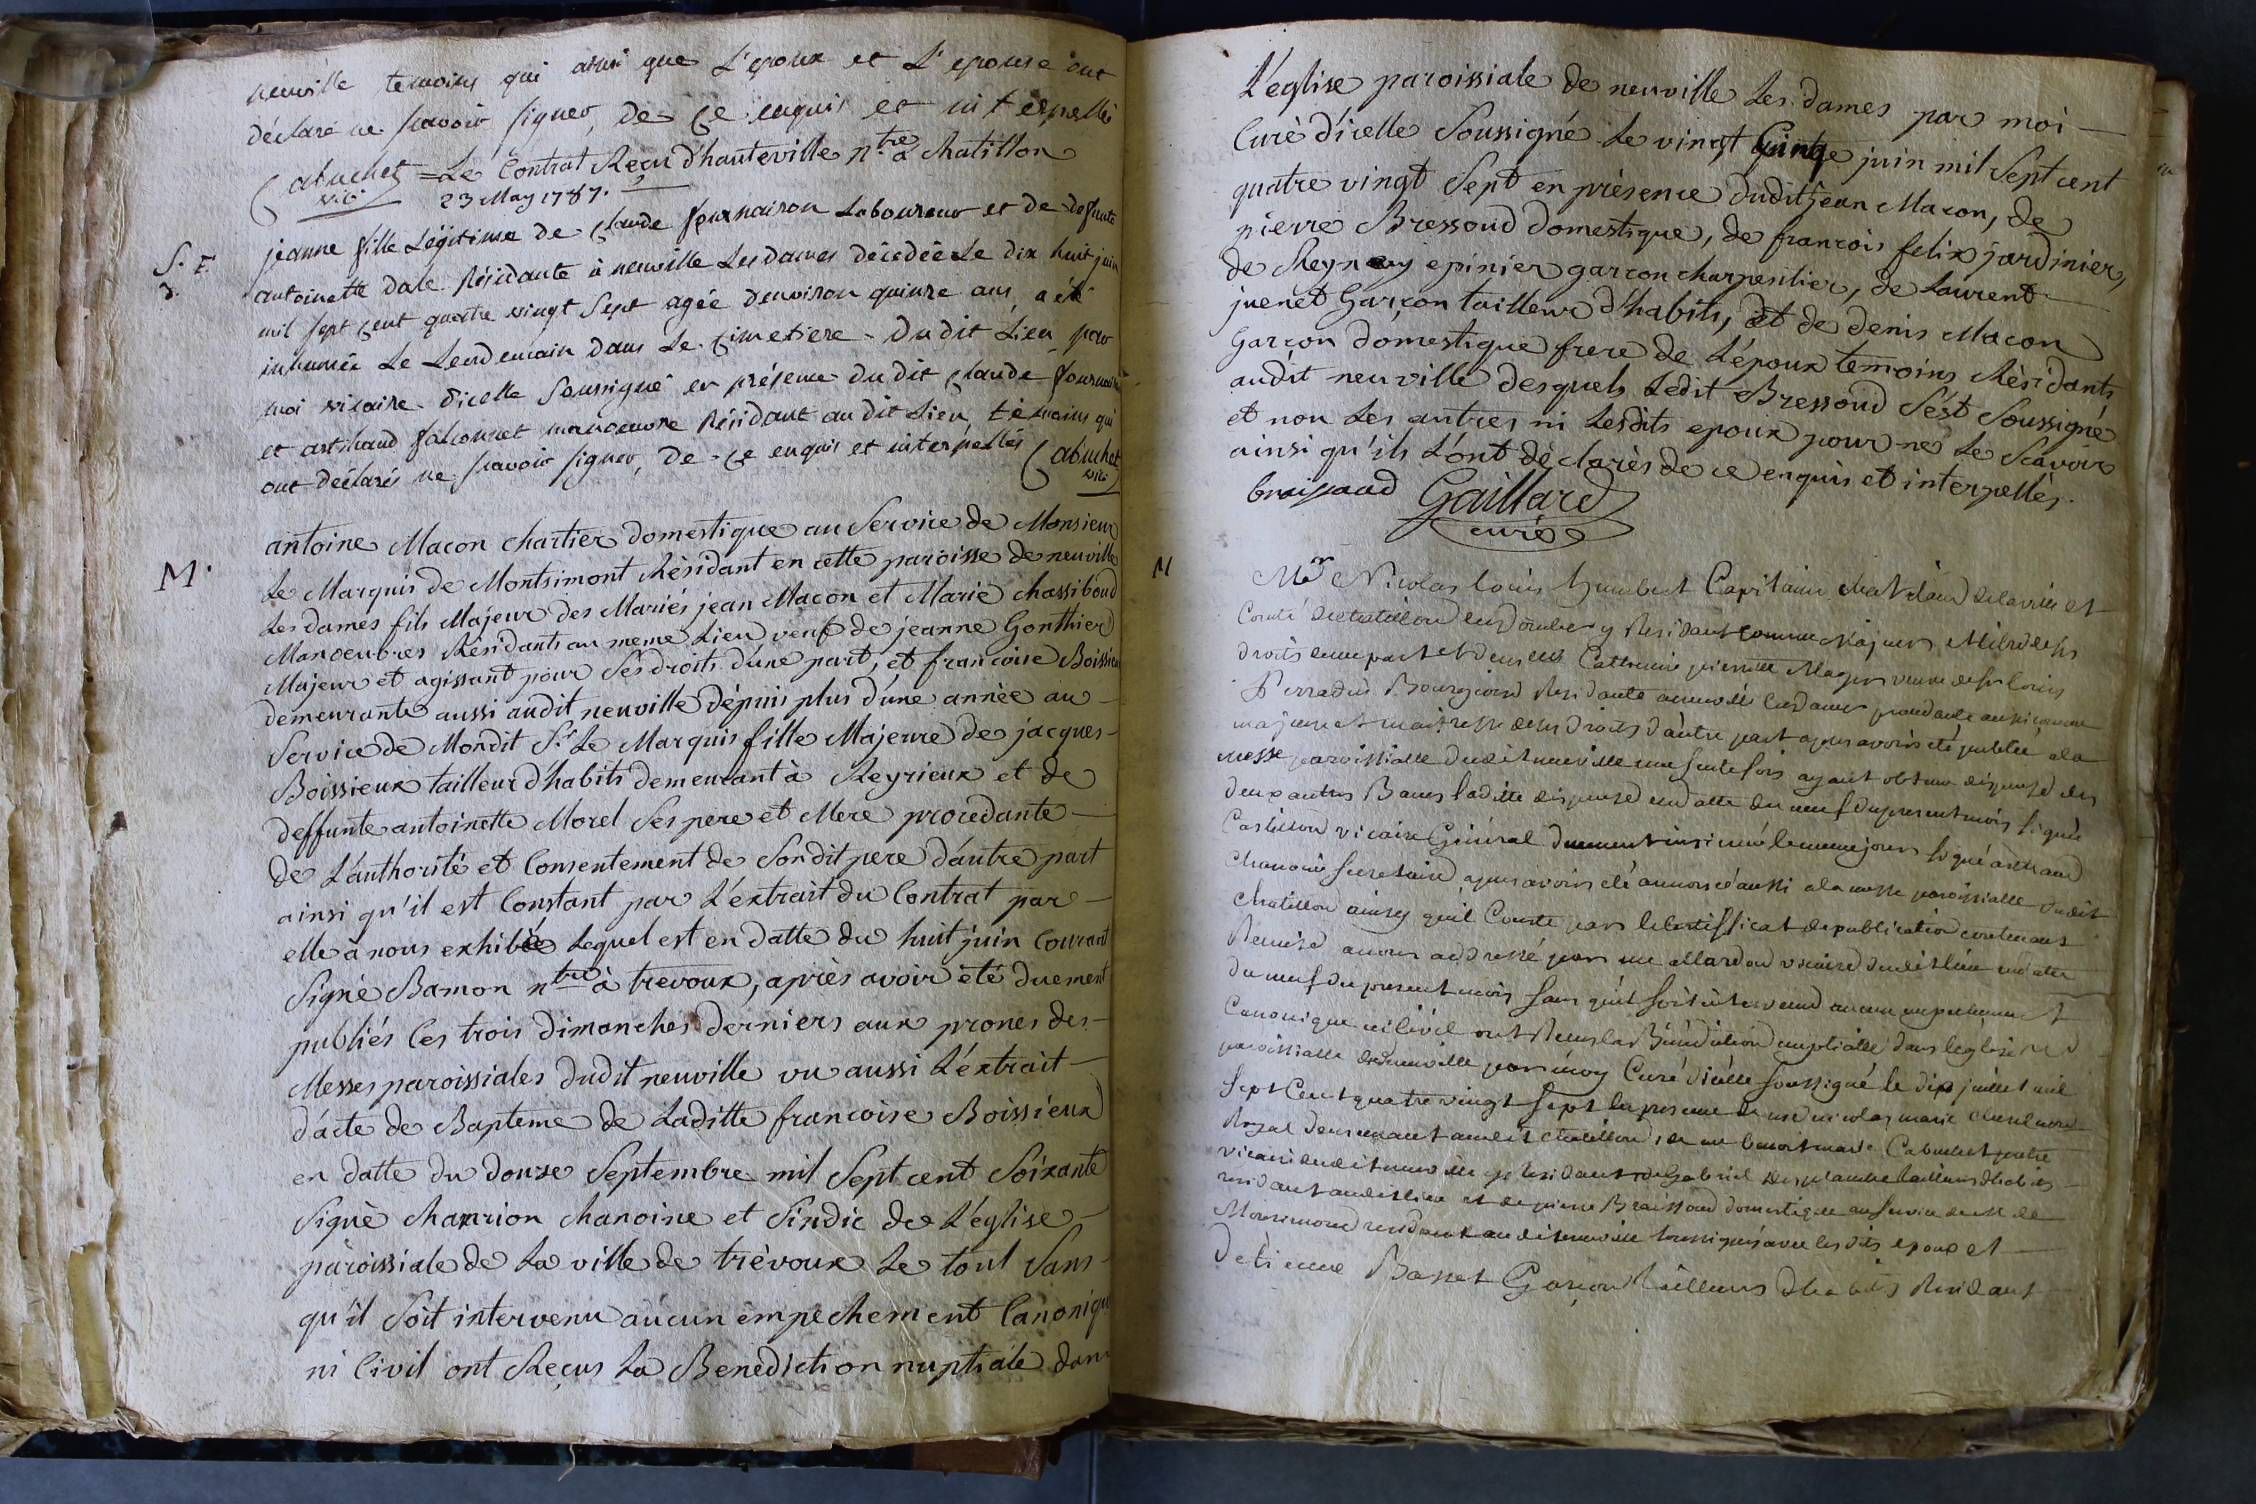 neuville temoins qui ainsi que L'epoux et L'epouse ont
déclaré ne scavoir signer, de ce enquis et interpellé
Cabuchet vic. = Le Contrat Reçu d'hauteville n.tre a Chatillon
23 May 1787.
S. F.
d.
jeanne fille Légitime de Claude fournaison Laboureur et de defunte
antoinette dale Résidante à neuville Les Dames décédée Le dix huit juin
mil sept cent quatre vingt sept agée d'environ quinze ans, a été
inhumée Le Lendemain dans Le Cimetiere dudit Lieu par
moi vicaire d'icelle Soussigné en présence dudit Claude fournaison
et artihaud falconnet manoeuvre Résidant audit Lieu, témoins qui
ont déclarés ne scavoir signer, de ce enquis et interpellés Cabuchet
vic.
M.
antoine Macon chartier domestique au Service de Monsieur
Le Marquis de Montsimont Résidant en cette paroisse de neuville
Les dames fils Majeur des Mariés jean Macon et Marie chassiboud
Manoeuvres Résidants au meme Lieu veuf de jeanne Gonthier
Majeur et agissant pour Ses droits d'une part, et francoise Boissieux
demeurante aussi audit neuville dépuis plus d'une année au
Service de Mondit S.r Le Marquis fille Majeure de jacques
Boissieux tailleur d'habits demeurant à Reyrieux et de
deffunte antoinette Morel Ses pere et Mere procedante
de L'authorité et Consentement de Sondit pere d'autre part
ainsi qu'il est Constant par L'extrait du Contrat par
elle à nous exhibée Lequel est en datte du huit juin Courant
Signé Bamon n.tre à trevoux, après avoir été duement
publiés les trois dimanches derniers aux prones des
Messes paroissiales dudit neuville vu aussi L'extrait
d'acte de Bapteme de Laditte francoise Boissieux
en datte du douze Septembre mil Sept cent Soixante
Signé charrion chanoine et Sindic de L'église
paroissiale de La ville de trévoux Le tout Sans
qu'il Soit intervenu aucun empechement Canonique
ni Civil ont Reçus La Benediction nuptiale dans
L'eglise paroissiale de neuville Les dames par moi
Curé d'icelle Soussigné Le vingt Cinq juin mil Sept cent
quatre vingt Sept en présence dudit jean Macon, de
pierre Bressoud domestique, de francois felix jardinier,
de Reyn epinier garcon charpentier, de Laurent
juenet Garçon tailleur d'habits, et de denis Macon
Garçon domestique frere de L'époux temoins Résidants
audit neuville desquels Ledit Bressoud S'est Soussigné
et non Les autres ni Lesdits epoux pour ne Le Scavoir
ainsi qu'ils L'ont déclarés de ce enquis et interpellés.
braissaud Gaillard
curé
M
Nicolas louis humbert Capitaine Chatelain de la ville et
Comté de Chatillon les Dombes y Residant comme Majeur Mètre de ses
droits d'une part et Catherine pierrette veuve de feu louis
Bourgeois Residante a neuville les dames procedante aussi comme
majeure et maitresse de ses droits d'autre part apres avoir été publié a la
messe paroissialle dudit neuville une seule fois ayant obtenu dispense des
deux autres Bancs laditte dispense en datte du neuf du present mois signée
vicaire Général duement insinué le meme jour signé
chanoine secretaire apres avoir été annoncé aussi a la messe paroissialle dudit
chatillon ainsy qu'il Conste par le Certifficat de publication contenant
Remise a nous addressé par vicaire dudit lieu en datte
du neuf du present mois sans qu'il soit intervenu aucun empechement
Canonique ni Civil ont Reçus la Bénédiction nuptialle dans l'église
paroissialle de neuville par moy Curé d'icelle soussigné le dix juillet mil
Sept Cent quatre vingt sept en presence de nicolas marie
Royal demeurant audit Chatillon, de Cabuchet
vicaire dudit neuville y Residant de Gabriel tailleur d'habits
residant audit lieu et de pierre Braissoud domestique au service de M de
Monsimond residant audit neuville soussignés avec les dits epoux et
d'etienne Basset Garcon tailleurs d'habits Residant